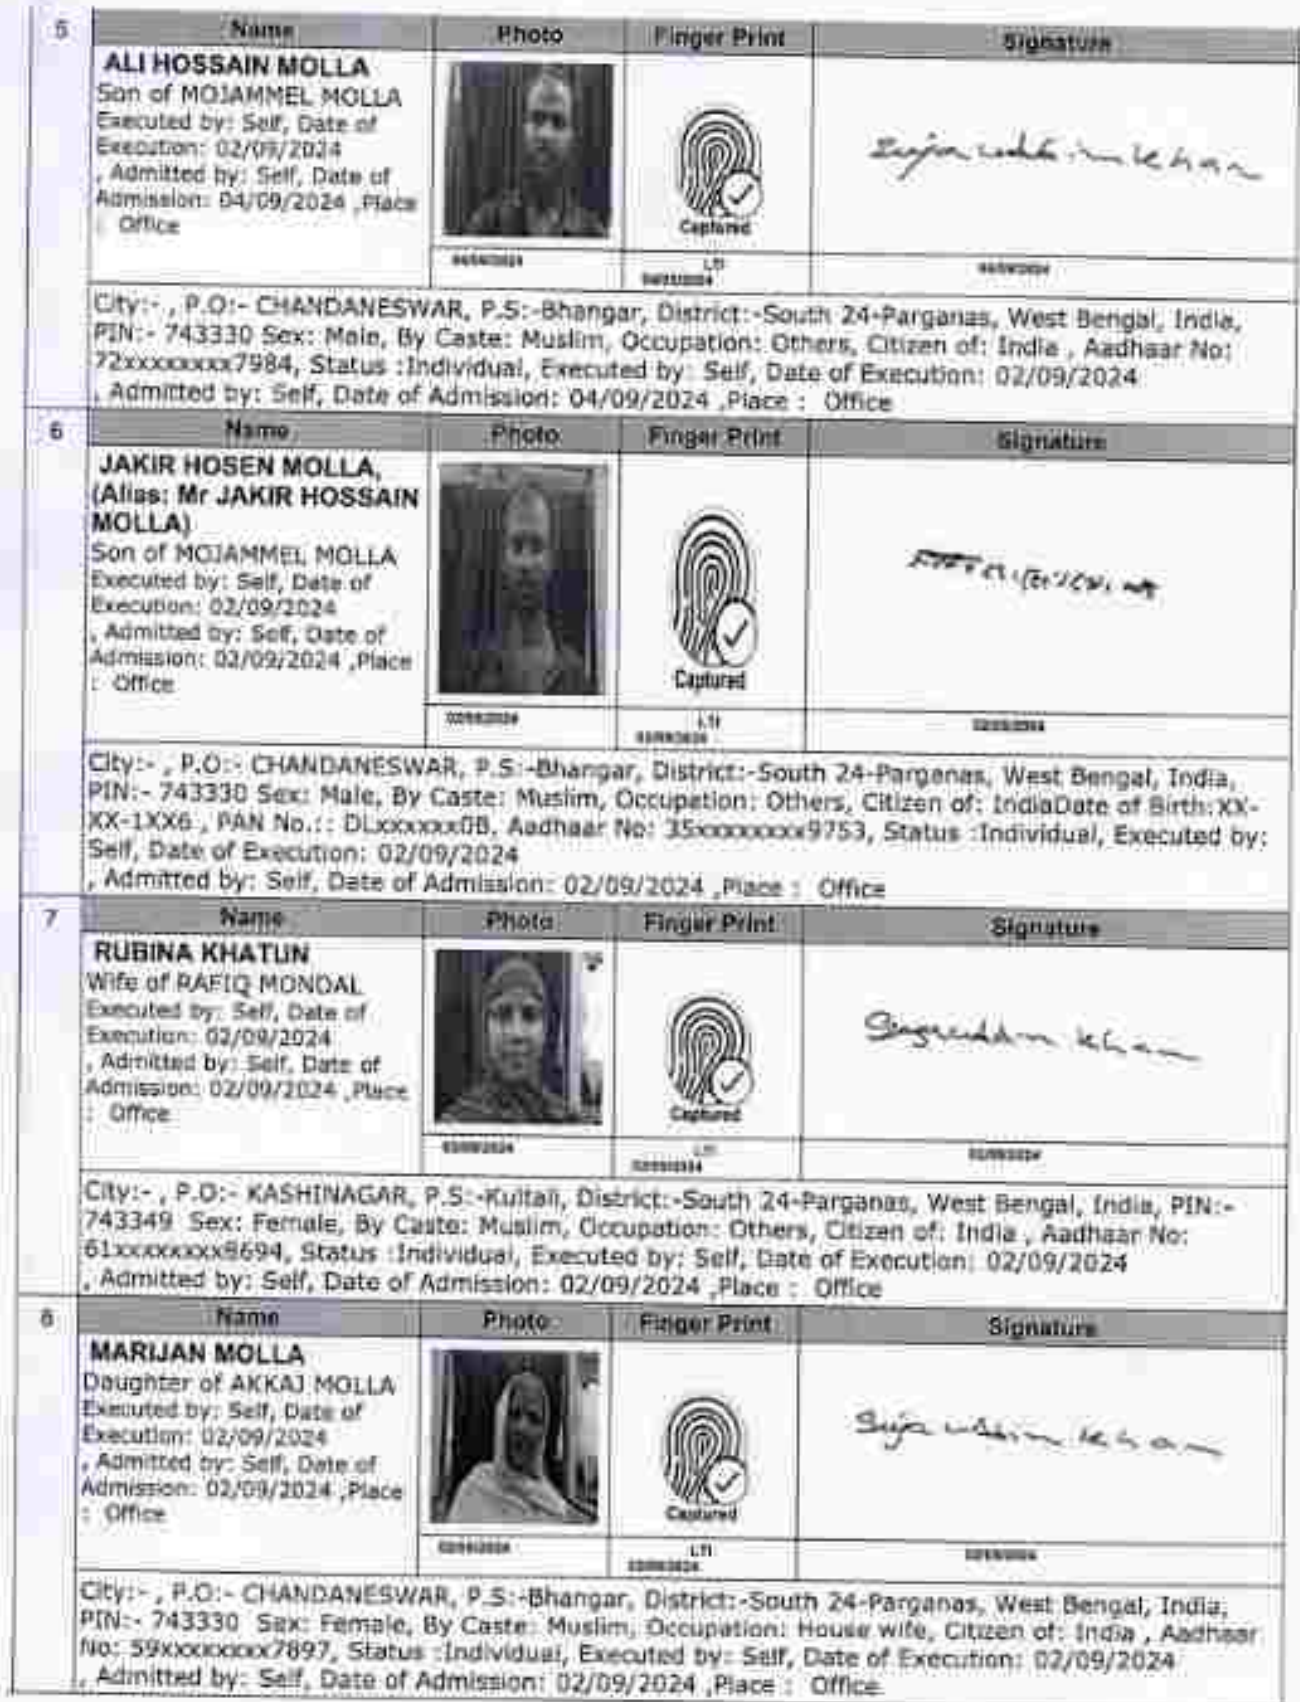 5
Name Photo Finger Print Signature
ALI HOSSAIN MOLLA
Son of MOJAMMEL MOLLA
Executed by: Self, Date of
Execution: 02/09/2024
, Admitted by: Self, Date of
Admission: 04/09/2024 ,Place
: Office
Captured
LTI
Sujauddin Khan
City:- , P.O:- CHANDANESWAR, P.S:-Bhangar, District:-South 24-Parganas, West Bengal, India,
PIN:- 743330 Sex: Male, By Caste: Muslim, Occupation: Others, Citizen of: India , Aadhaar No:
72xxxxxxxx7984, Status :Individual, Executed by: Self, Date of Execution: 02/09/2024
, Admitted by: Self, Date of Admission: 04/09/2024 ,Place : Office
6
Name Photo Finger Print Signature
JAKIR HOSEN MOLLA,
(Alias: Mr JAKIR HOSSAIN
MOLLA)
Son of MOJAMMEL MOLLA
Executed by: Self, Date of
Execution: 02/09/2024
, Admitted by: Self, Date of
Admission: 02/09/2024 ,Place
: Office
Captured
LTI
City:- , P.O:- CHANDANESWAR, P.S:-Bhangar, District:-South 24-Parganas, West Bengal, India,
PIN:- 743330 Sex: Male, By Caste: Muslim, Occupation: Others, Citizen of: IndiaDate of Birth:XX-
XX-1XX6 , PAN No.:: DLxxxxxx0B, Aadhaar No: 35xxxxxxxx9753, Status :Individual, Executed by:
Self, Date of Execution: 02/09/2024
, Admitted by: Self, Date of Admission: 02/09/2024 ,Place : Office
7
Name Photo Finger Print Signature
RUBINA KHATUN
Wife of RAFIQ MONDAL
Executed by: Self, Date of
Execution: 02/09/2024
, Admitted by: Self, Date of
Admission: 02/09/2024 ,Place
: Office
Captured
LTI
Sujauddin Khan
02/09/2024
City:- , P.O:- KASHINAGAR, P.S:-Kultali, District:-South 24-Parganas, West Bengal, India, PIN:-
743349 Sex: Female, By Caste: Muslim, Occupation: Others, Citizen of: India , Aadhaar No:
61xxxxxxxx8694, Status :Individual, Executed by: Self, Date of Execution: 02/09/2024
, Admitted by: Self, Date of Admission: 02/09/2024 ,Place : Office
8
Name Photo Finger Print Signature
MARIJAN MOLLA
Daughter of AKKAJ MOLLA
Executed by: Self, Date of
Execution: 02/09/2024
, Admitted by: Self, Date of
Admission: 02/09/2024 ,Place
: Office
Captured
LTI
Sujauddin Khan
City:- , P.O:- CHANDANESWAR, P.S:-Bhangar, District:-South 24-Parganas, West Bengal, India,
PIN:- 743330 Sex: Female, By Caste: Muslim, Occupation: House wife, Citizen of: India , Aadhaar
No: 59xxxxxxxx7897, Status :Individual, Executed by: Self, Date of Execution: 02/09/2024
, Admitted by: Self, Date of Admission: 02/09/2024 ,Place : Office